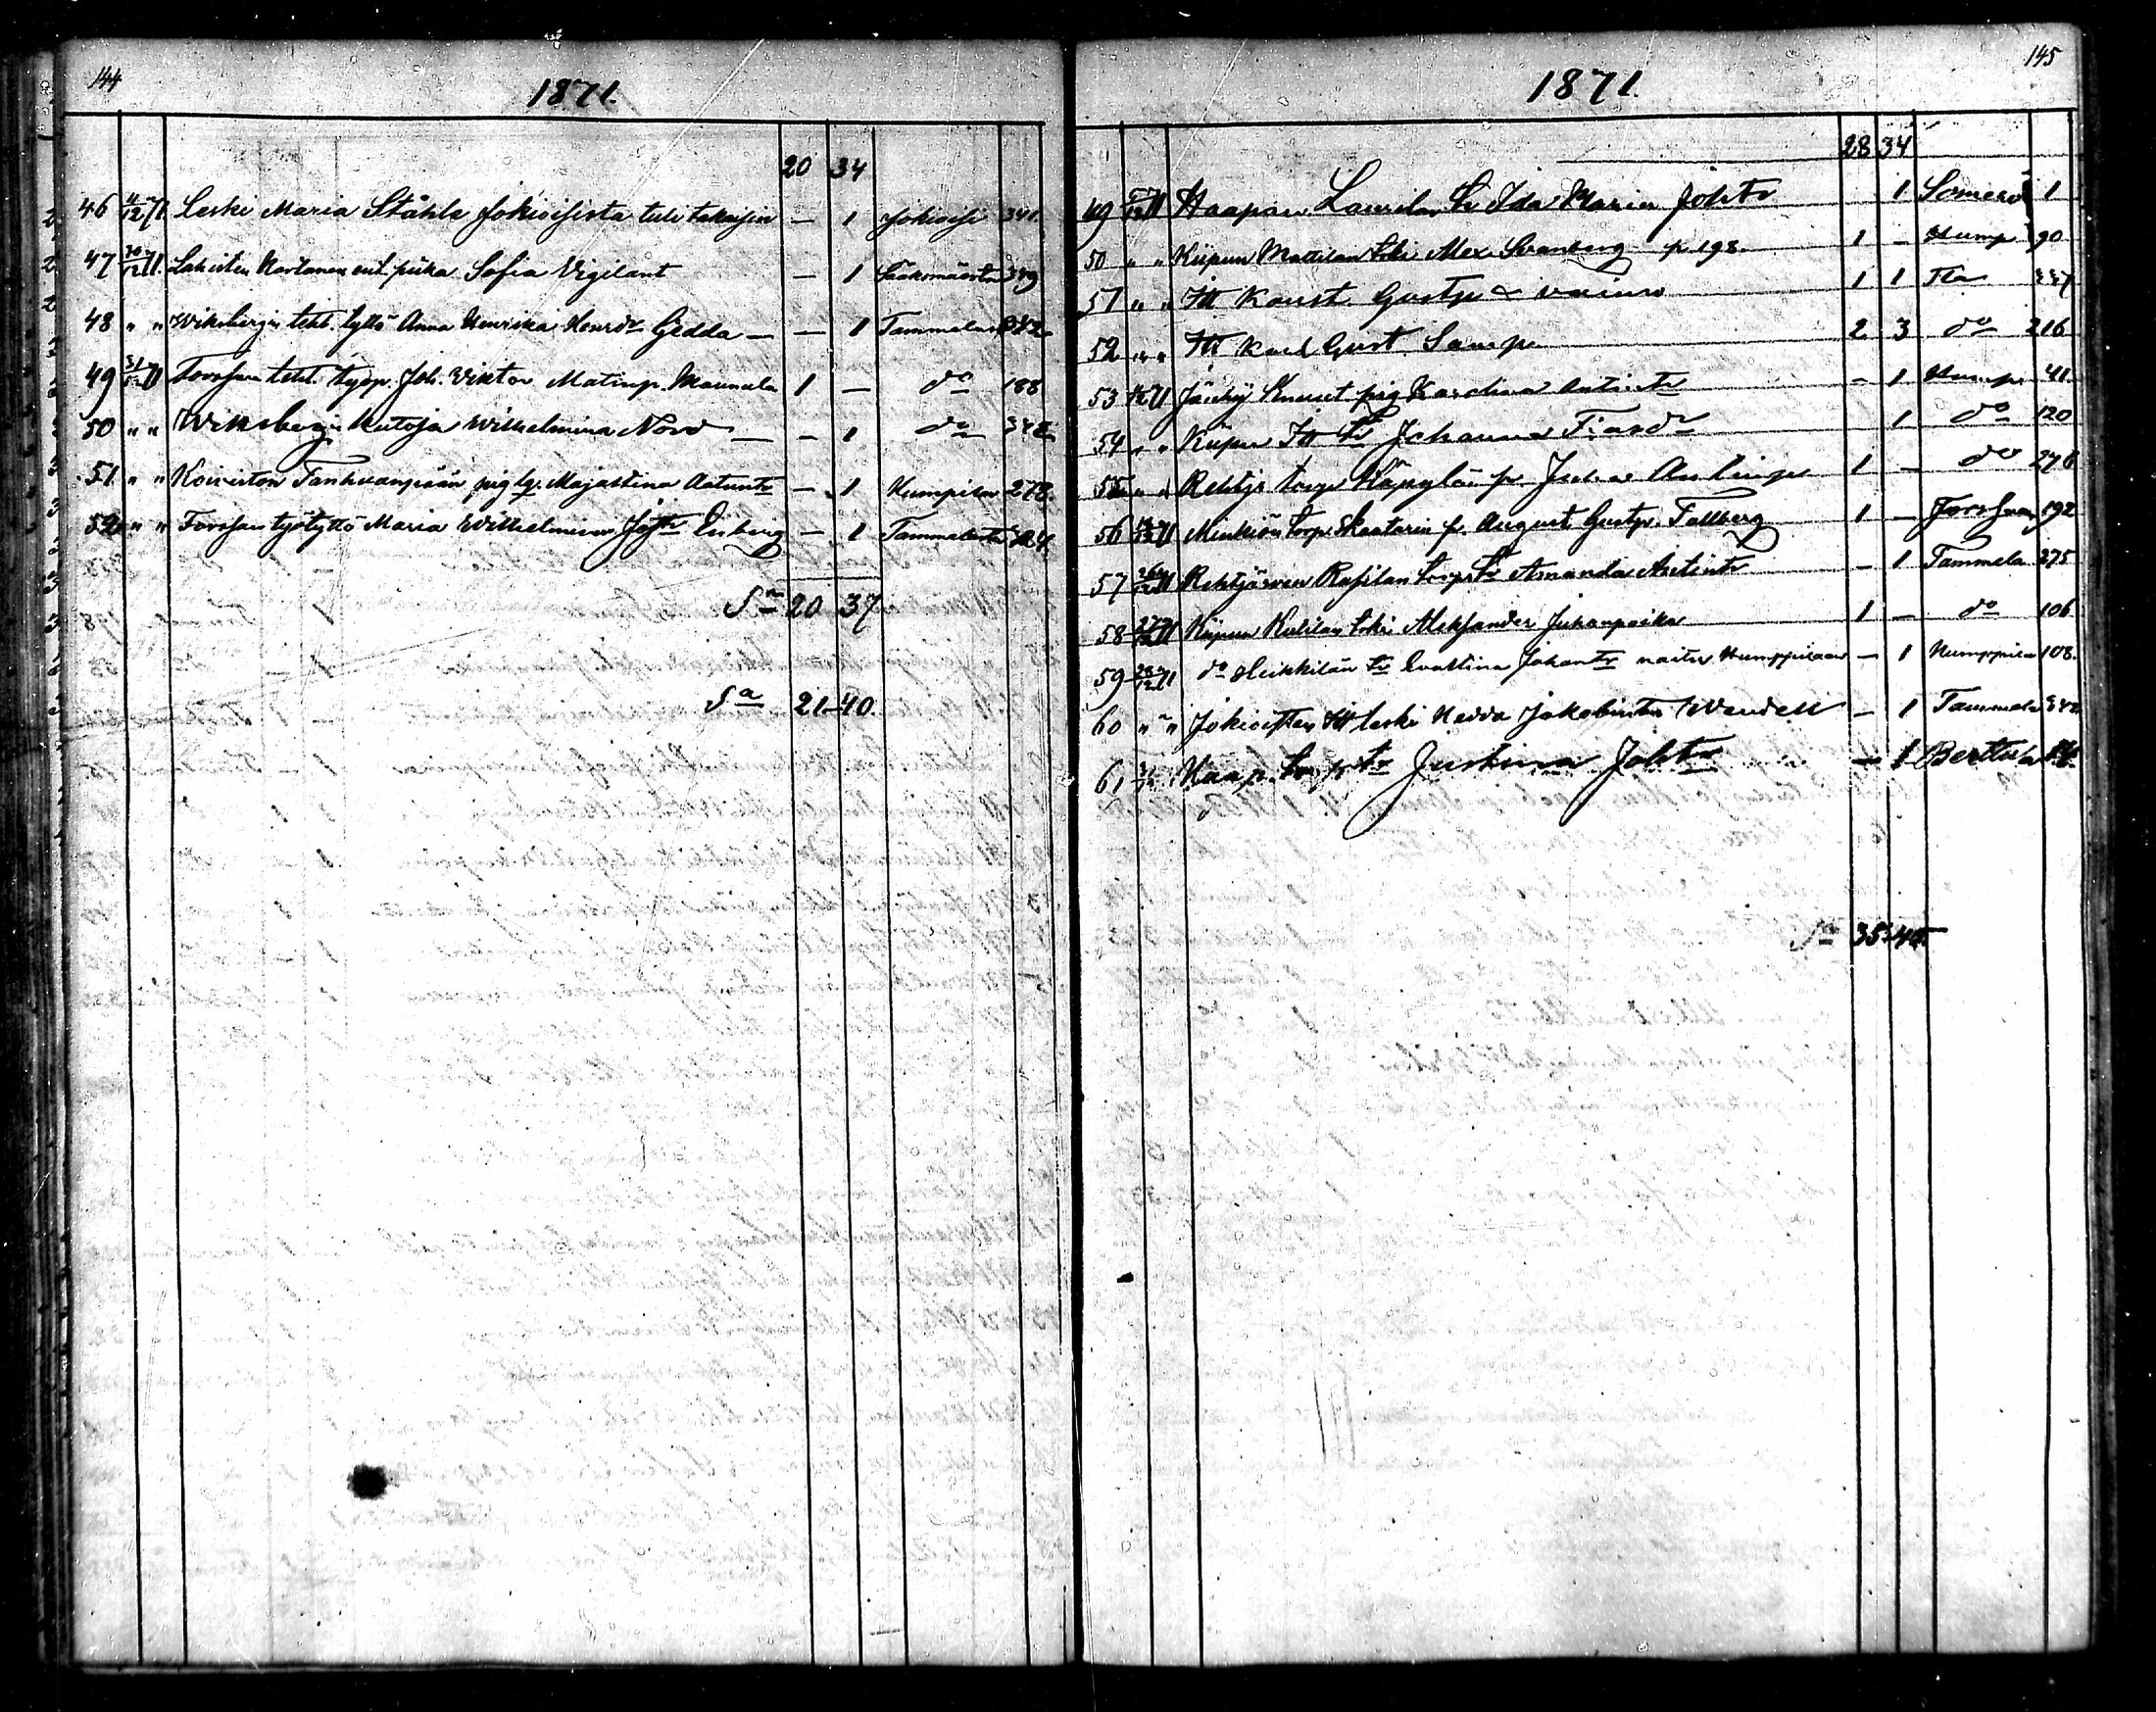 144
1871.
20 34
46 11/12 71. Leski Maria Ståhle Jokioisista tuli takaisin — 1 Jokioisi 341.
47 30/12 71. Lahisten Kartanon ent. piika Sofia Vigilant — 1 Sääksmäestä 349
48 " " Wiksbergin teht. tyttö Anna Henrika Henrdr Gedda — — 1 Tammelasta
49 31/12 71 Forssan teht. työp. Joh. Viktor Matinp. Mannela 1 — do 188
50 " " Wiksbergin Kutoja Wilhelmina Nord — — 1 do 342
51. " " Koiviston Tanhuanpään Majastina Antintr — 1 Humppila 278.
52 " " Forssan työtyttö Maria Wilhelmina Enberg — 1 Tammelasta
Sa 20 37
Sa 21 40.
145
1871.
28 34
49 Haapan. Laurilan tr Ida Maria Johtr 1 Somero 1
50 " " Kiipun Mattilan Alex. Svanberg p. 198. 1 — Hump. 90
51 " " Itt Konst. Gustp & vaimo 1 1 Tla
52 " " Itt Karl Gust Samp 2 3 do 216
53 Jänhij Knuut. pig Karolina Antintr — 1 Hump. 41.
54 " " Kiipu Itt tr Johanna 1 do 120
55 " " Rehtjä torp. Käpylän p. Antinp. 1 — do 276
56 Minkiön torp. p. August Gustp. Fallberg 1 — Forssaan 192
57 26/12 71 Rehtjärven Rasilan torp. tr Amanda Antintr — 1 Tammela 275
58 27/12 71 Kiipun Aleksander Juhanpoika 1 — do 106
59 28/12 71 do Heikkilän tr Evastina Johantr naitu Humppilaan — 1 Humppila 108.
60 " " Jokioisten Itt leski Hedda Jakobintr Wendell — 1 Tammela
61 Haap. torp. tr Justina Johtr — 1 Berttula
Sa 35